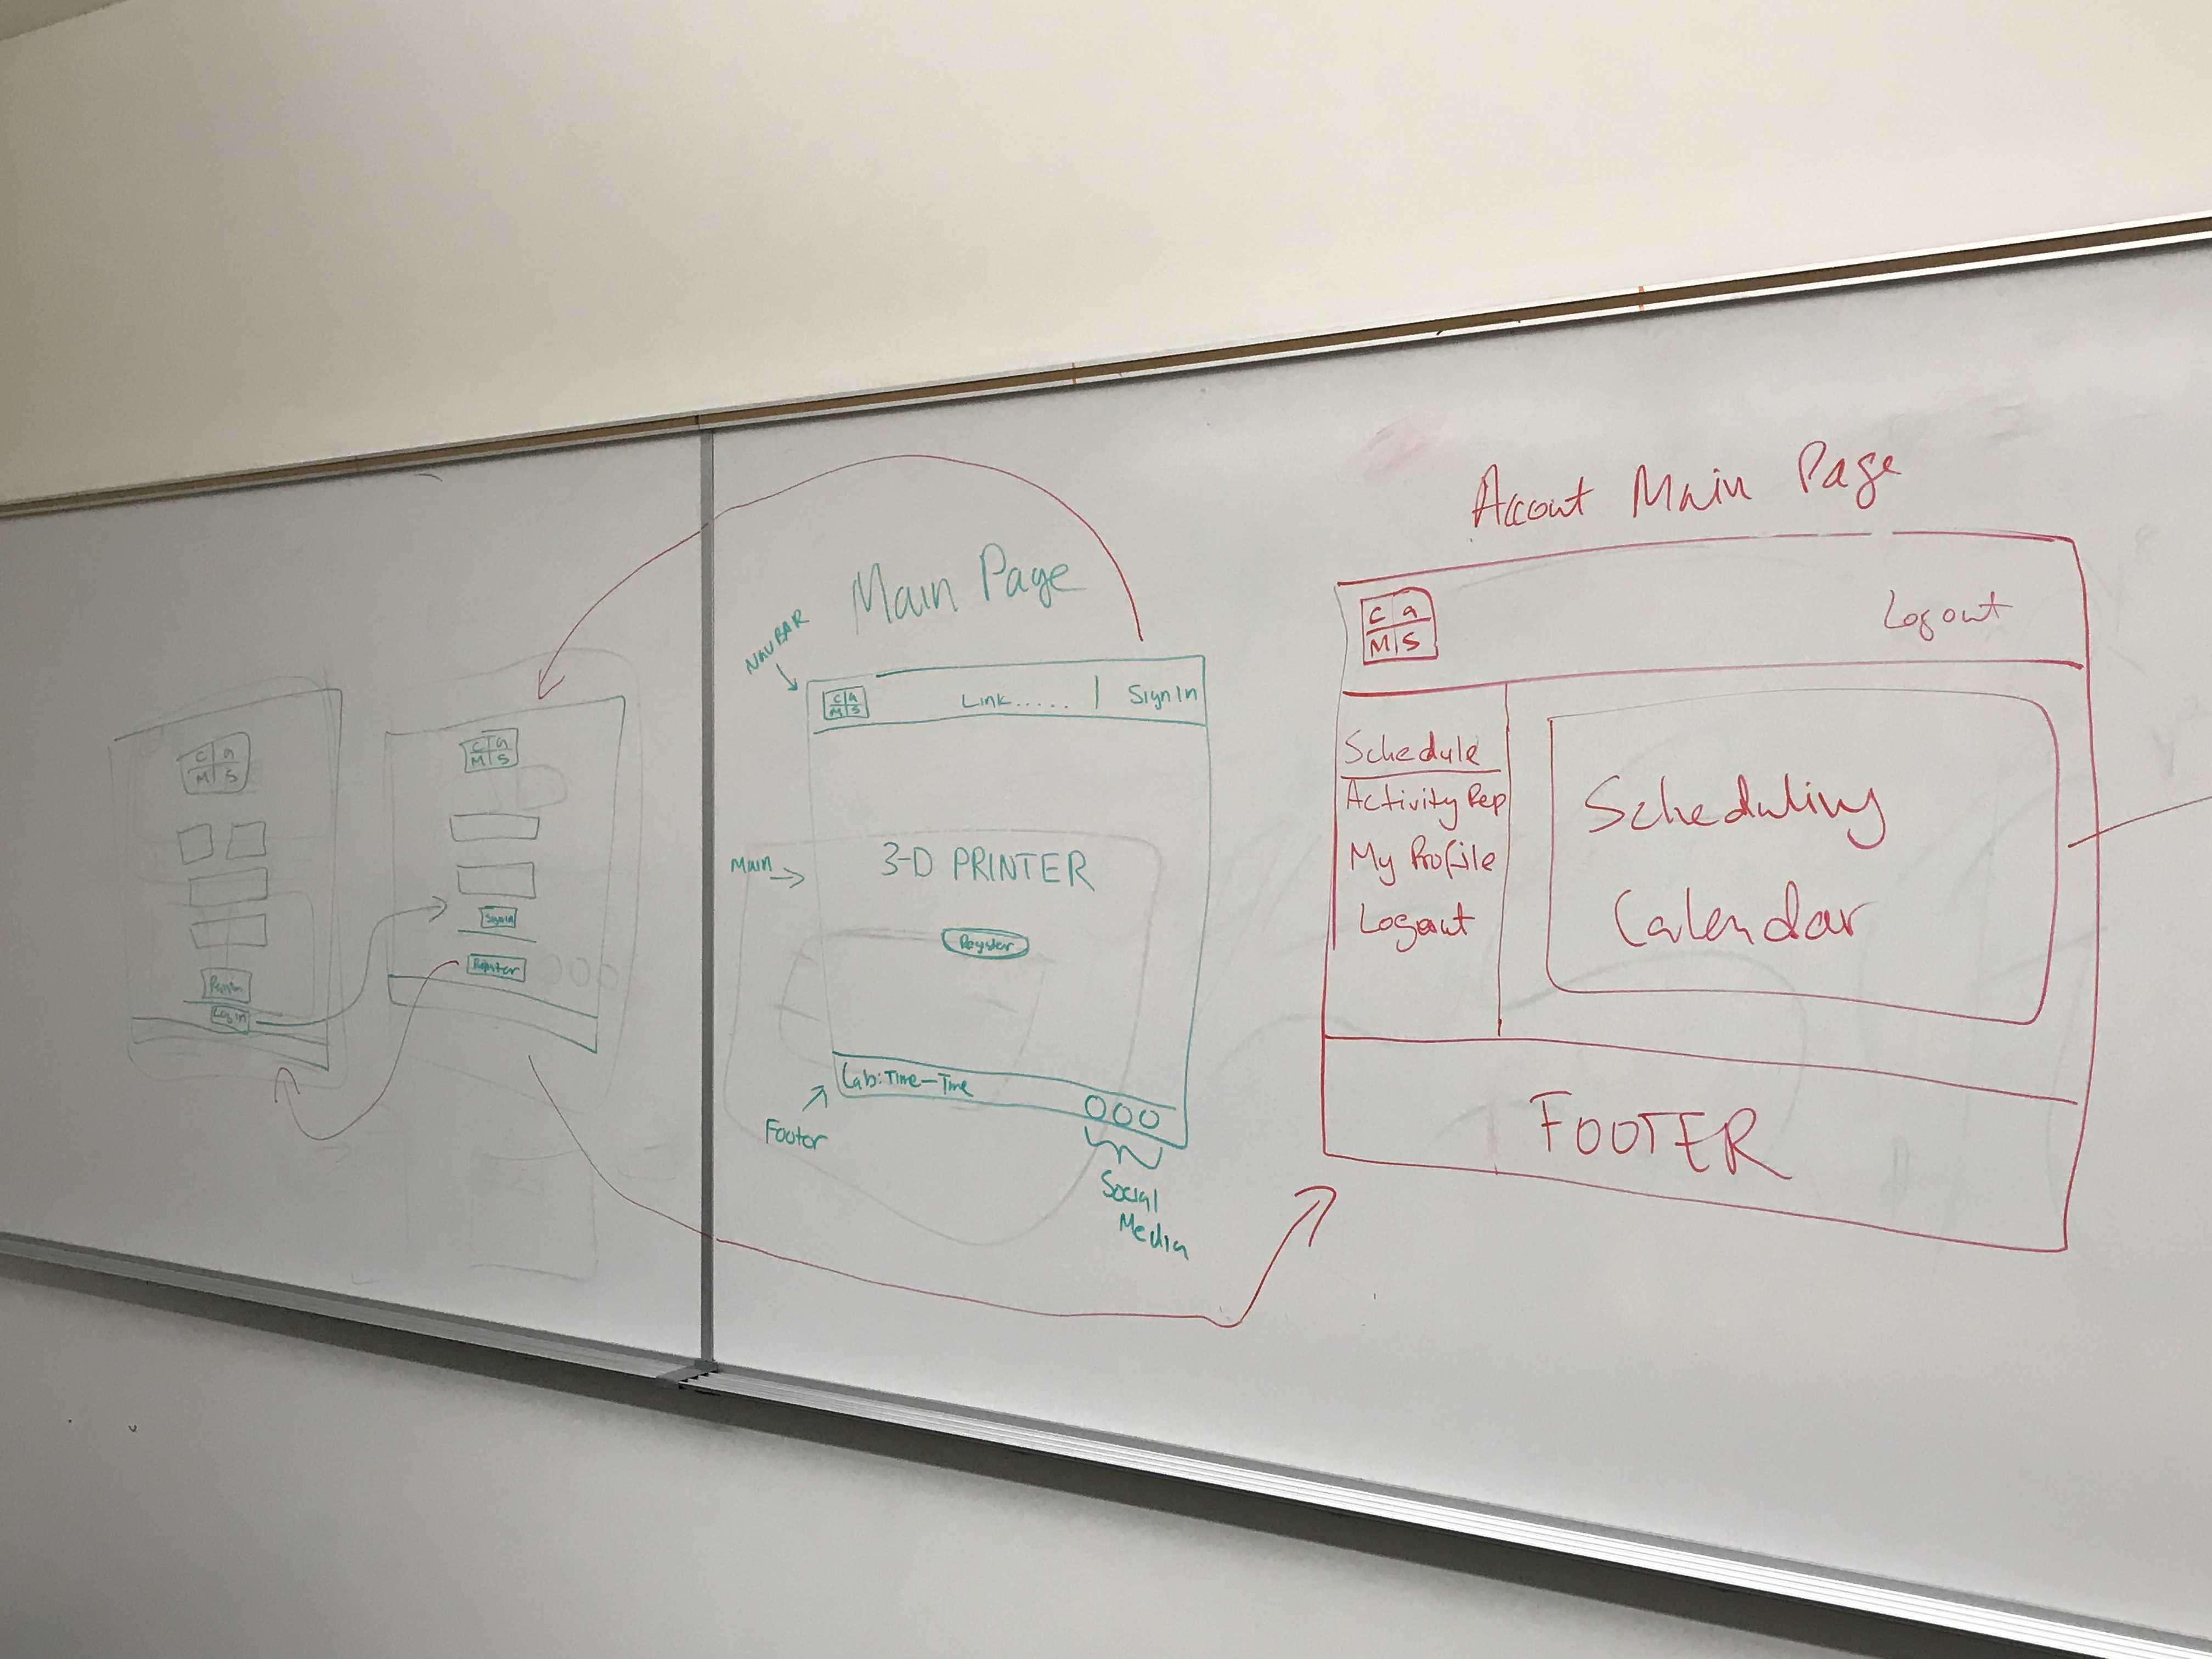 C a
M S
Register
Log in
C a
M S
Sign in
Register
Main Page
NAVBAR
C a
M S
Link..... | Sign In
Main
3-D PRINTER
Register
Lab: Time - Time
Footer
Social
Media
Accout Main Page
C a
M S
Logout
Schedule
Activity Rep
My Profile
Logout
Scheduling
Calendar
FOOTER